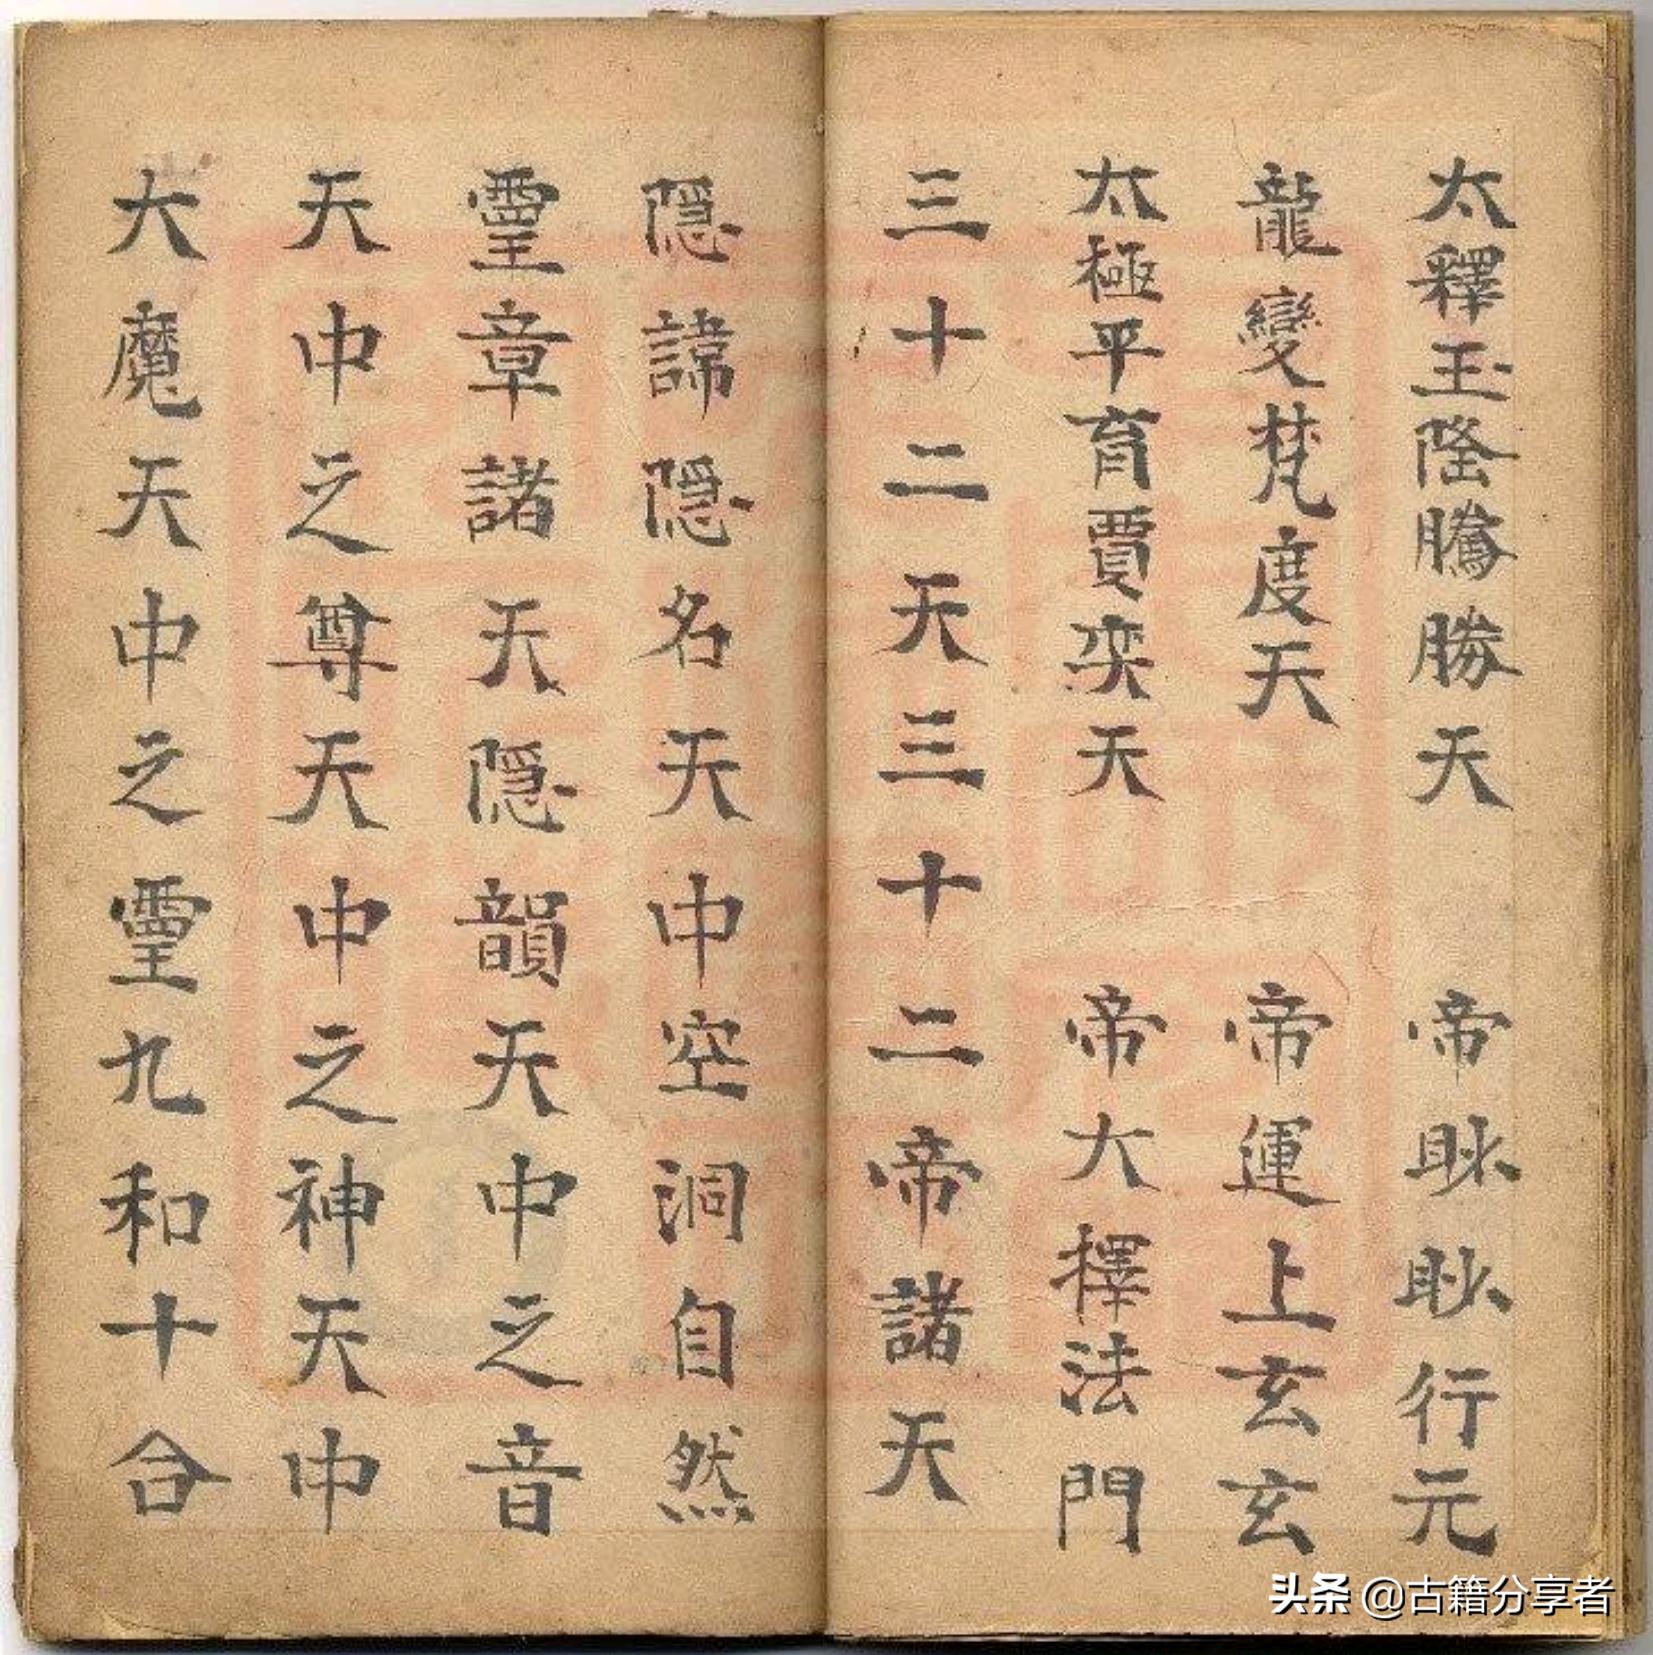 太釋玉隆騰勝天 帝眇眇行元
龍變梵度天 帝運上玄玄
太極平育賈奕天 帝大擇法門
三十二天三十二帝諸天
隠諱隠名天中空洞自然
靈章諸天隠韻天中之音
天中之尊天中之神天中
大魔天中之靈九和十合
头条 @古籍分享者